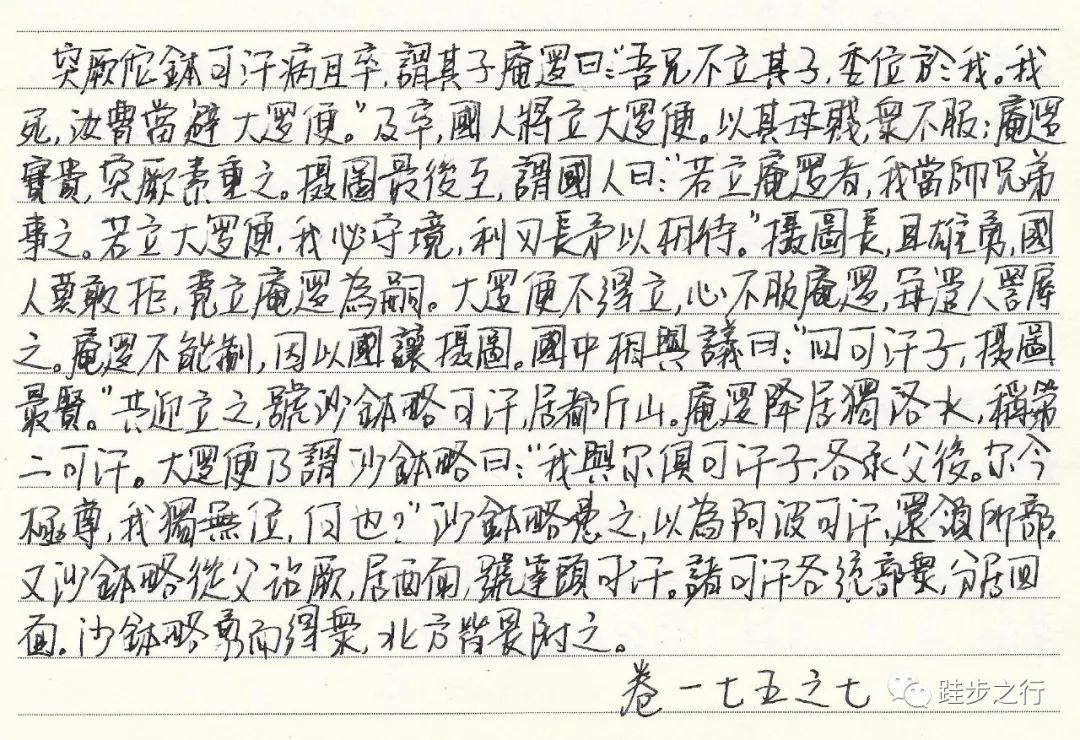 突厥佗鉢可汗病且卒,謂其子菴邏曰:“吾兄不立其子,委位於我。我
死,汝曹當避大邏便。”及卒,國人將立大邏便。以其母賤,衆不服;菴邏
實貴,突厥素重之。摄圖最後至,謂國人曰:“若立菴邏者,我當帥兄弟
事之。若立大邏便,我必守境,利刃長矛以相待。”摄圖長,且雄勇,國
人莫敢拒,竟立菴邏為嗣。大邏便不得立,心不服菴邏,每遣人詈辱
之。菴邏不能制,因以國讓摄圖。國中相與議曰:“四可汗子,摄圖
最賢。”共迎立之,號沙鉢略可汗,居都斤山。菴邏降居獨洛水,稱第
二可汗。大邏便乃謂沙鉢略曰:“我與尔俱可汗子,各承父後。尔今
極尊,我獨無位,何也?”沙鉢略患之,以為阿波可汗,還領所部。
又沙鉢略從父玷厥,居西面,號達頭可汗。諸可汗各統部衆,分居四
面。沙鉢略勇而得衆,北方皆畏附之。
卷一七五之七
跬步之行